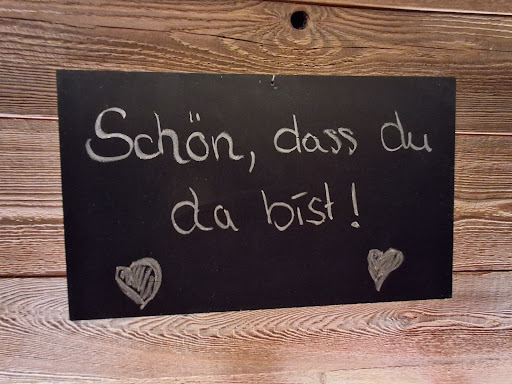 Schön, dass du
da bist!